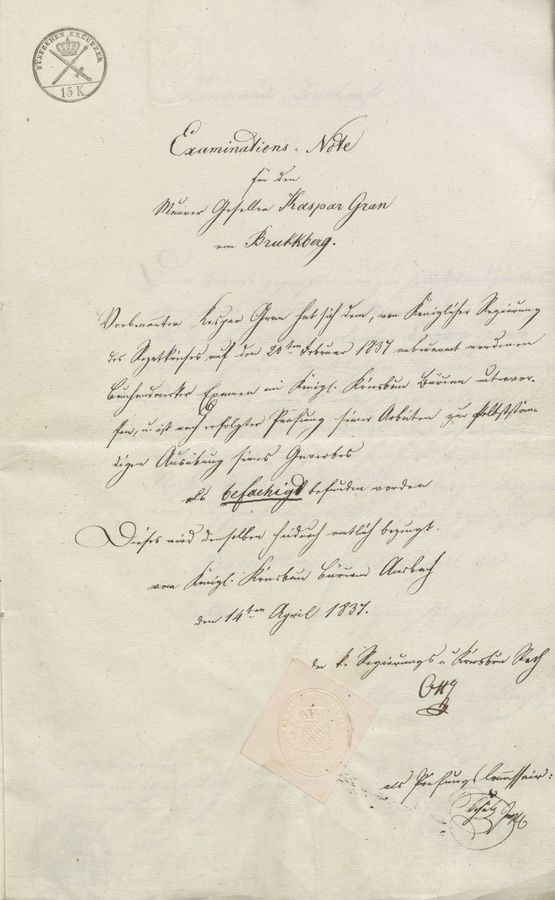 FÜNFZEHEN KREUTZER
15 K
Examinations-Note
für den
Maurer Gesellen Kaspar Gran
von Brukkberg.
Vorbenannter Kaspar Gran hat sich dem, von Königlicher Regierung
des Rezatkreises auf den 20ten Februar 1837 anberaumt wordenen
Bauhandwerker Examen im Königl. Kreisbau Büreau unterwor-
fen, u. ist nach erfolgter Prüfung seiner Arbeiten zur selbststän-
digen Ausübung seines Gewerbes
als befaehigt befunden worden
Dieses wird demselben hiedurch amtlich bezeugt.
vom Königl. Kreisbau Büreau Ansbach
den 14ten April 1837.
der k. Regierungs u. Kreisbau Rath
als Prüfungs Commissair: